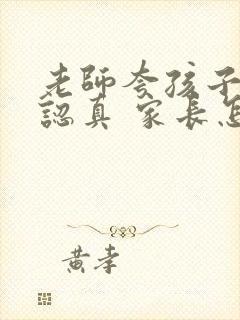 老師夸孩子
認真 家長怎
黃孝